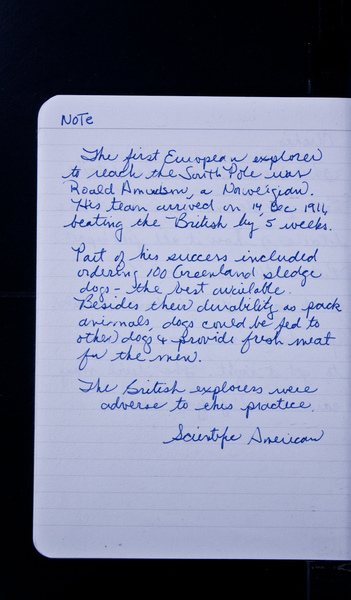 NOTE
The first European explorer
to reach the South Pole was
Roald Amudsm, a Norweigian.
His team arrived on 14 Dec 1911,
beating the British by 5 weeks.
Part of his success included
ordering 100 Greenland sledge
dogs - the best available.
Besides their durability as pack
animals, dogs could be fed to
other dogs & provide fresh meat
for the men.
The British explorers were
adverse to this practice.
Scientific American